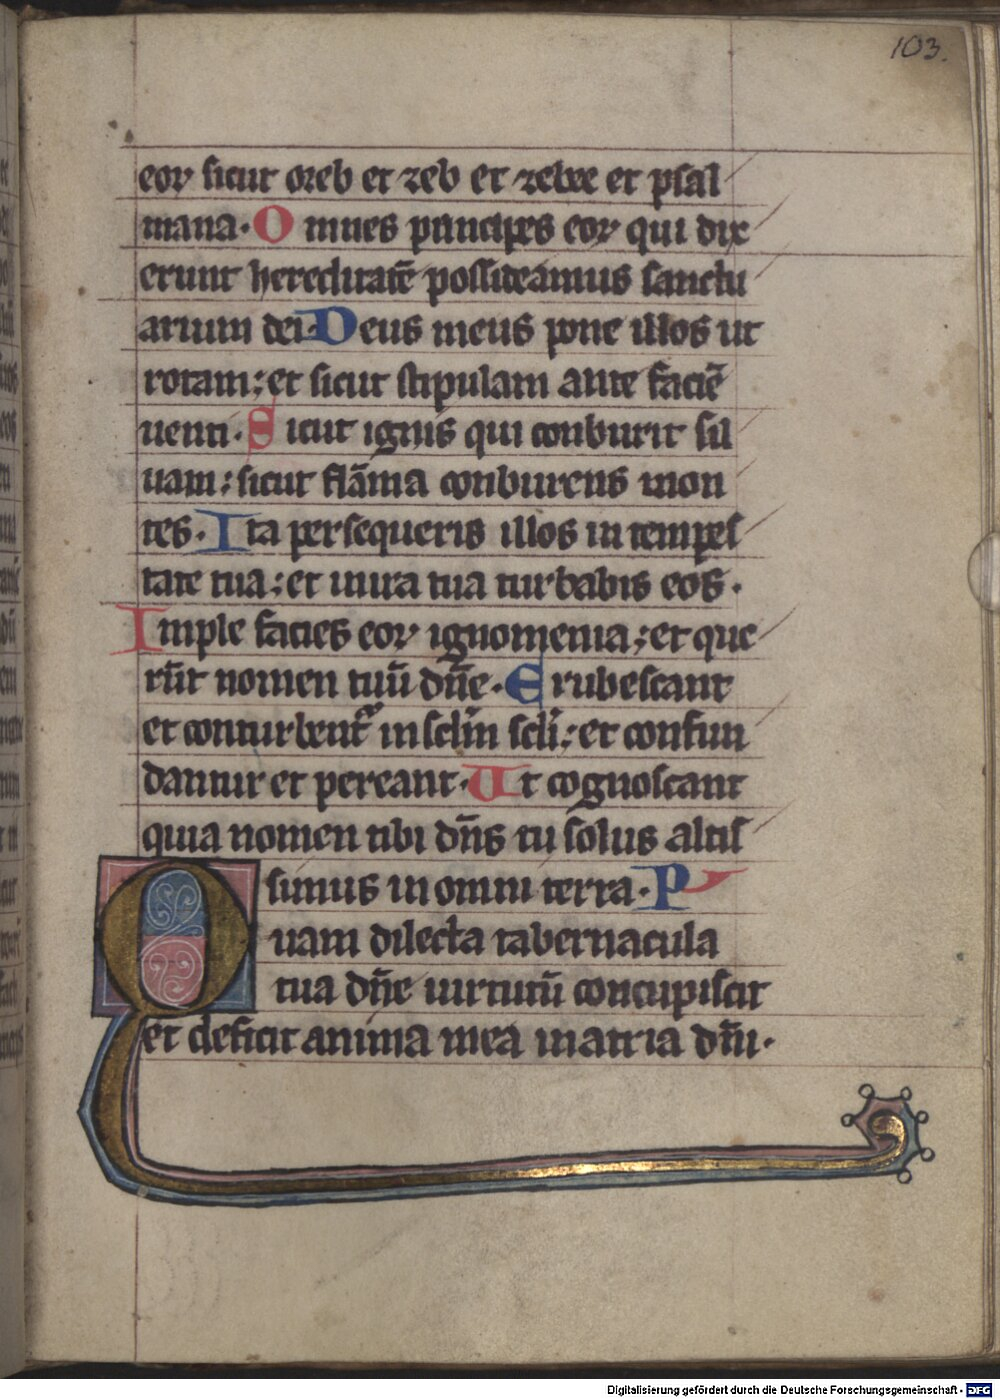 103.
eoꝝ sicut oreb et zeb et zebee et psal
mana. Omnes principes eoꝝ qui dix
erunt hereditatē possideamus sanctu
arium dei. Deus meus pone illos ut
rotam; et sicut stipulam ante faciē
uenti. Sicut ignis qui conburit sil
uam; sicut flāma conburens mon
tes. Ita persequeris illos in tempes
tate tua; et in ira tua turbabis eos.
Imple facies eoꝝ ignomenia; et que
rūt nomen tuū dn̄e. Erubescant
et conturbent᷑ in sclm̄ scli̅; et confun
dantur et pereant. Ut cognoscant
quia nomen tibi dn̄s tu solus altis
simus in omni terra. P
Quam dilecta tabernacula
tua dn̄e uirtutū concupiscit
et deficit anima mea in atria dn̄i.
Digitalisierung gefördert durch die Deutsche Forschungsgemeinschaft - DFG